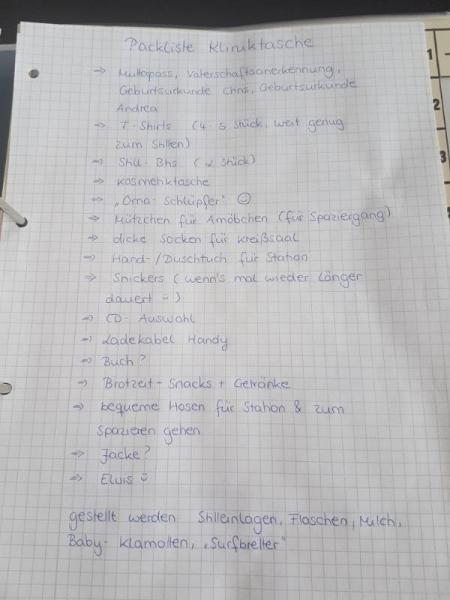 Packliste Kliniktasche
⇒ Mutterpass, Vaterschaftsanerkennung,
Geburtsurkunde Chris, Geburtsurkunde
Andrea
⇒ T-Shirts (4-5 Stück, weit genug
zum Stillen)
⇒ Still-BHs (2 Stück)
⇒ Kosmetiktasche
⇒ „Oma-Schlüpfer" ☺
⇒ Mützchen für Amöbchen (für Spaziergang)
⇒ dicke Socken für Kreißsaal
⇒ Hand-/Duschtuch für Station
⇒ Snickers (wenn's mal wieder länger
dauert :-)
⇒ CD-Auswahl
⇒ Ladekabel Handy
⇒ Buch?
⇒ Brotzeit-Snacks + Getränke
⇒ bequeme Hosen für Station & zum
Spazieren gehen
⇒ Jacke?
⇒ Elvis ☺
gestellt werden Stilleinlagen, Flaschen, Milch,
Baby-Klamotten, „Surfbretter"
1
2
3